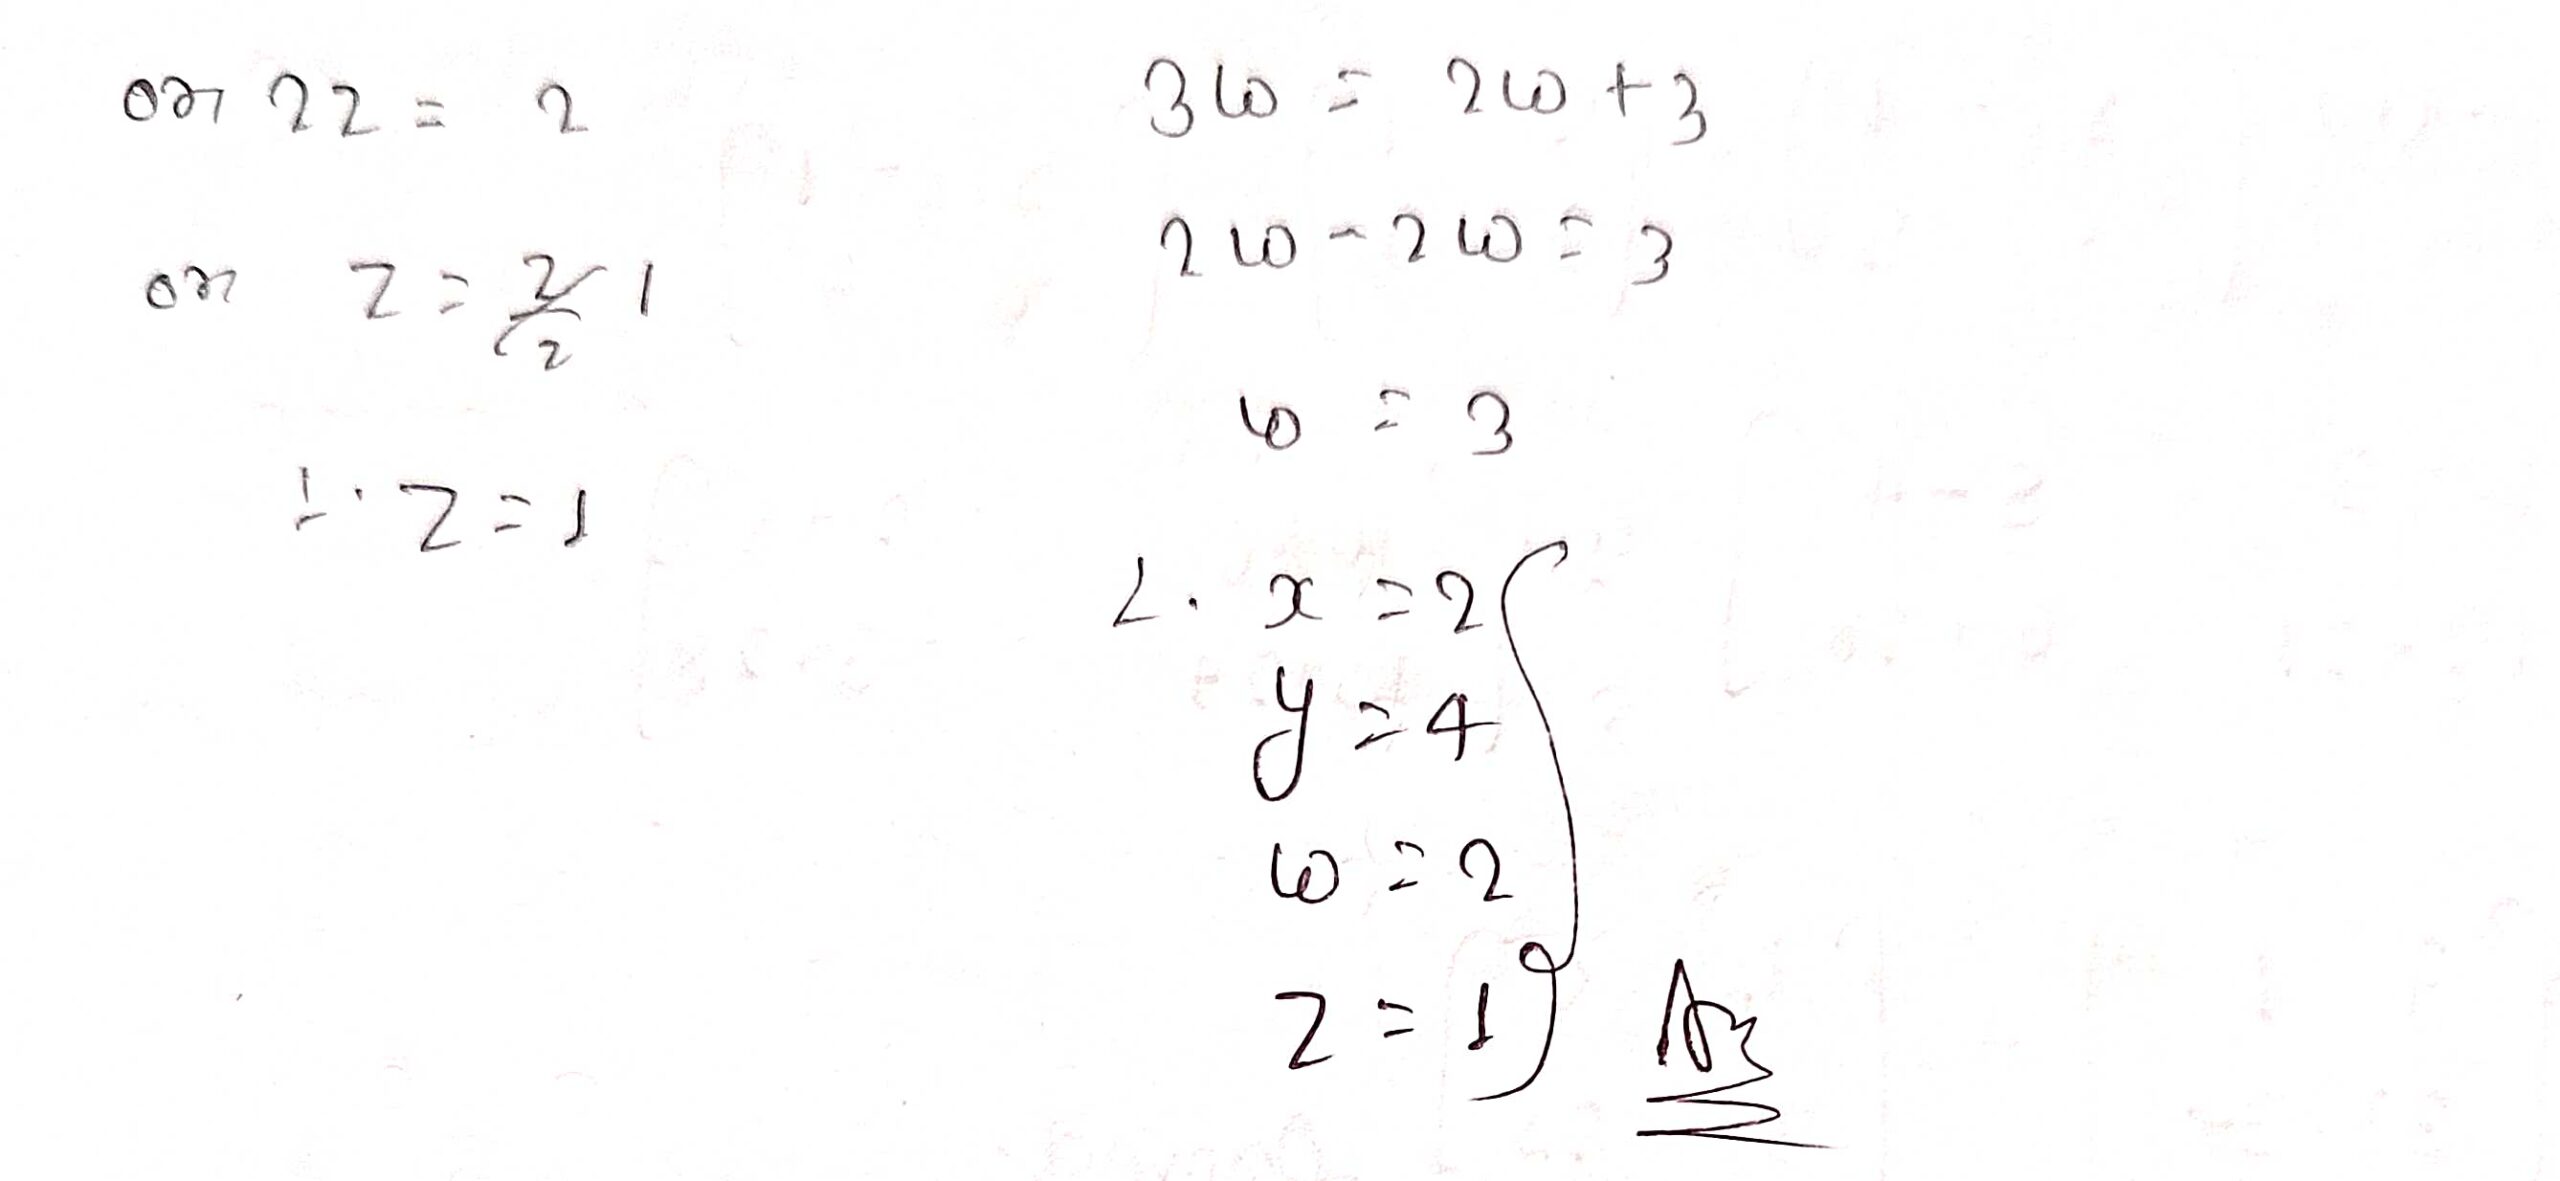 or 2z = 2
or z = 2/2 1
∴ z = 1
3w = 2w + 3
2w - 2w = 3
w = 3
∴ x = 2
y = 4
w = 2
z = 1
Ans